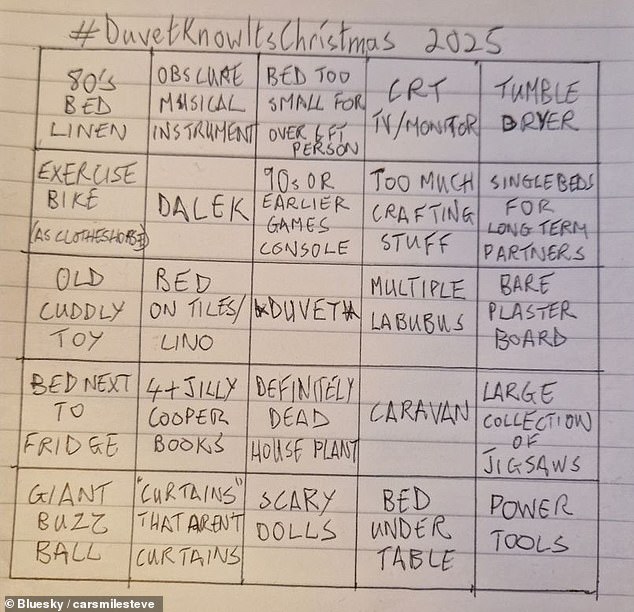 #DuvetKnowItsChristmas 2025
80's
BED
LINEN
OBSCURE
MUSICAL
INSTRUMENT
BED TOO
SMALL FOR
OVER 6FT
PERSON
CRT
TV/MONITOR
TUMBLE
DRYER
EXERCISE
BIKE
(AS CLOTHESHORSE)
DALEK
90s OR
EARLIER
GAMES
CONSOLE
TOO MUCH
CRAFTING
STUFF
SINGLE BEDS
FOR
LONG TERM
PARTNERS
OLD
CUDDLY
TOY
BED
ON TILES/
LINO
*DUVET*
MULTIPLE
LABUBUS
BARE
PLASTER
BOARD
BED NEXT
TO
FRIDGE
4+ JILLY
COOPER
BOOKS
DEFINITELY
DEAD
HOUSE PLANT
CARAVAN
LARGE
COLLECTION
OF
JIGSAWS
GIANT
BUZZ
BALL
"CURTAINS"
THAT AREN'T
CURTAINS
SCARY
DOLLS
BED
UNDER
TABLE
POWER
TOOLS
© Bluesky / carsmilesteve